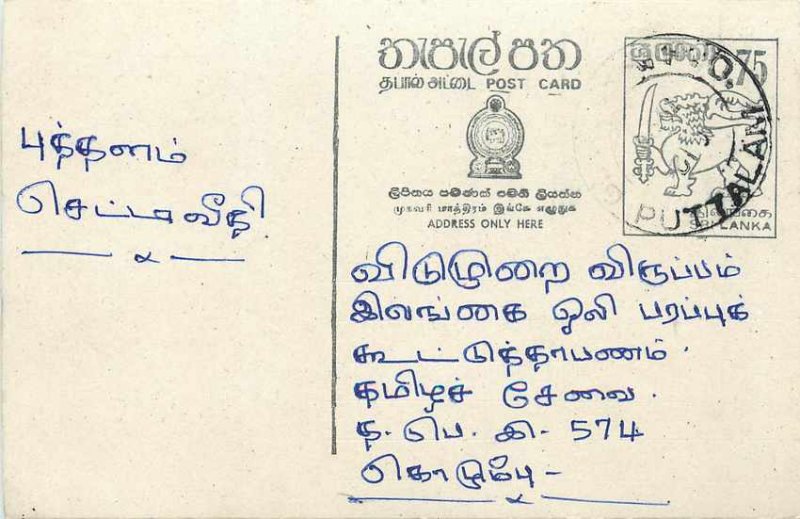 තැපැල් පත
தபால் அட்டை POST CARD
75
PUTTALAM
ලිපිනය පමණක් පමණි ලියන්න
முகவரி மாத்திரம் இங்கே எழுதுக
ADDRESS ONLY HERE
இலங்கை
SRI LANKA
புத்தளம்
செட்டிவீதி
விடுமுறை விருப்பம்
இலங்கை ஒலி பரப்புக்
கூட்டுத்தாபணம்.
தமிழச் சேவை.
த. பெ. கி- 574
கொடும்பு -